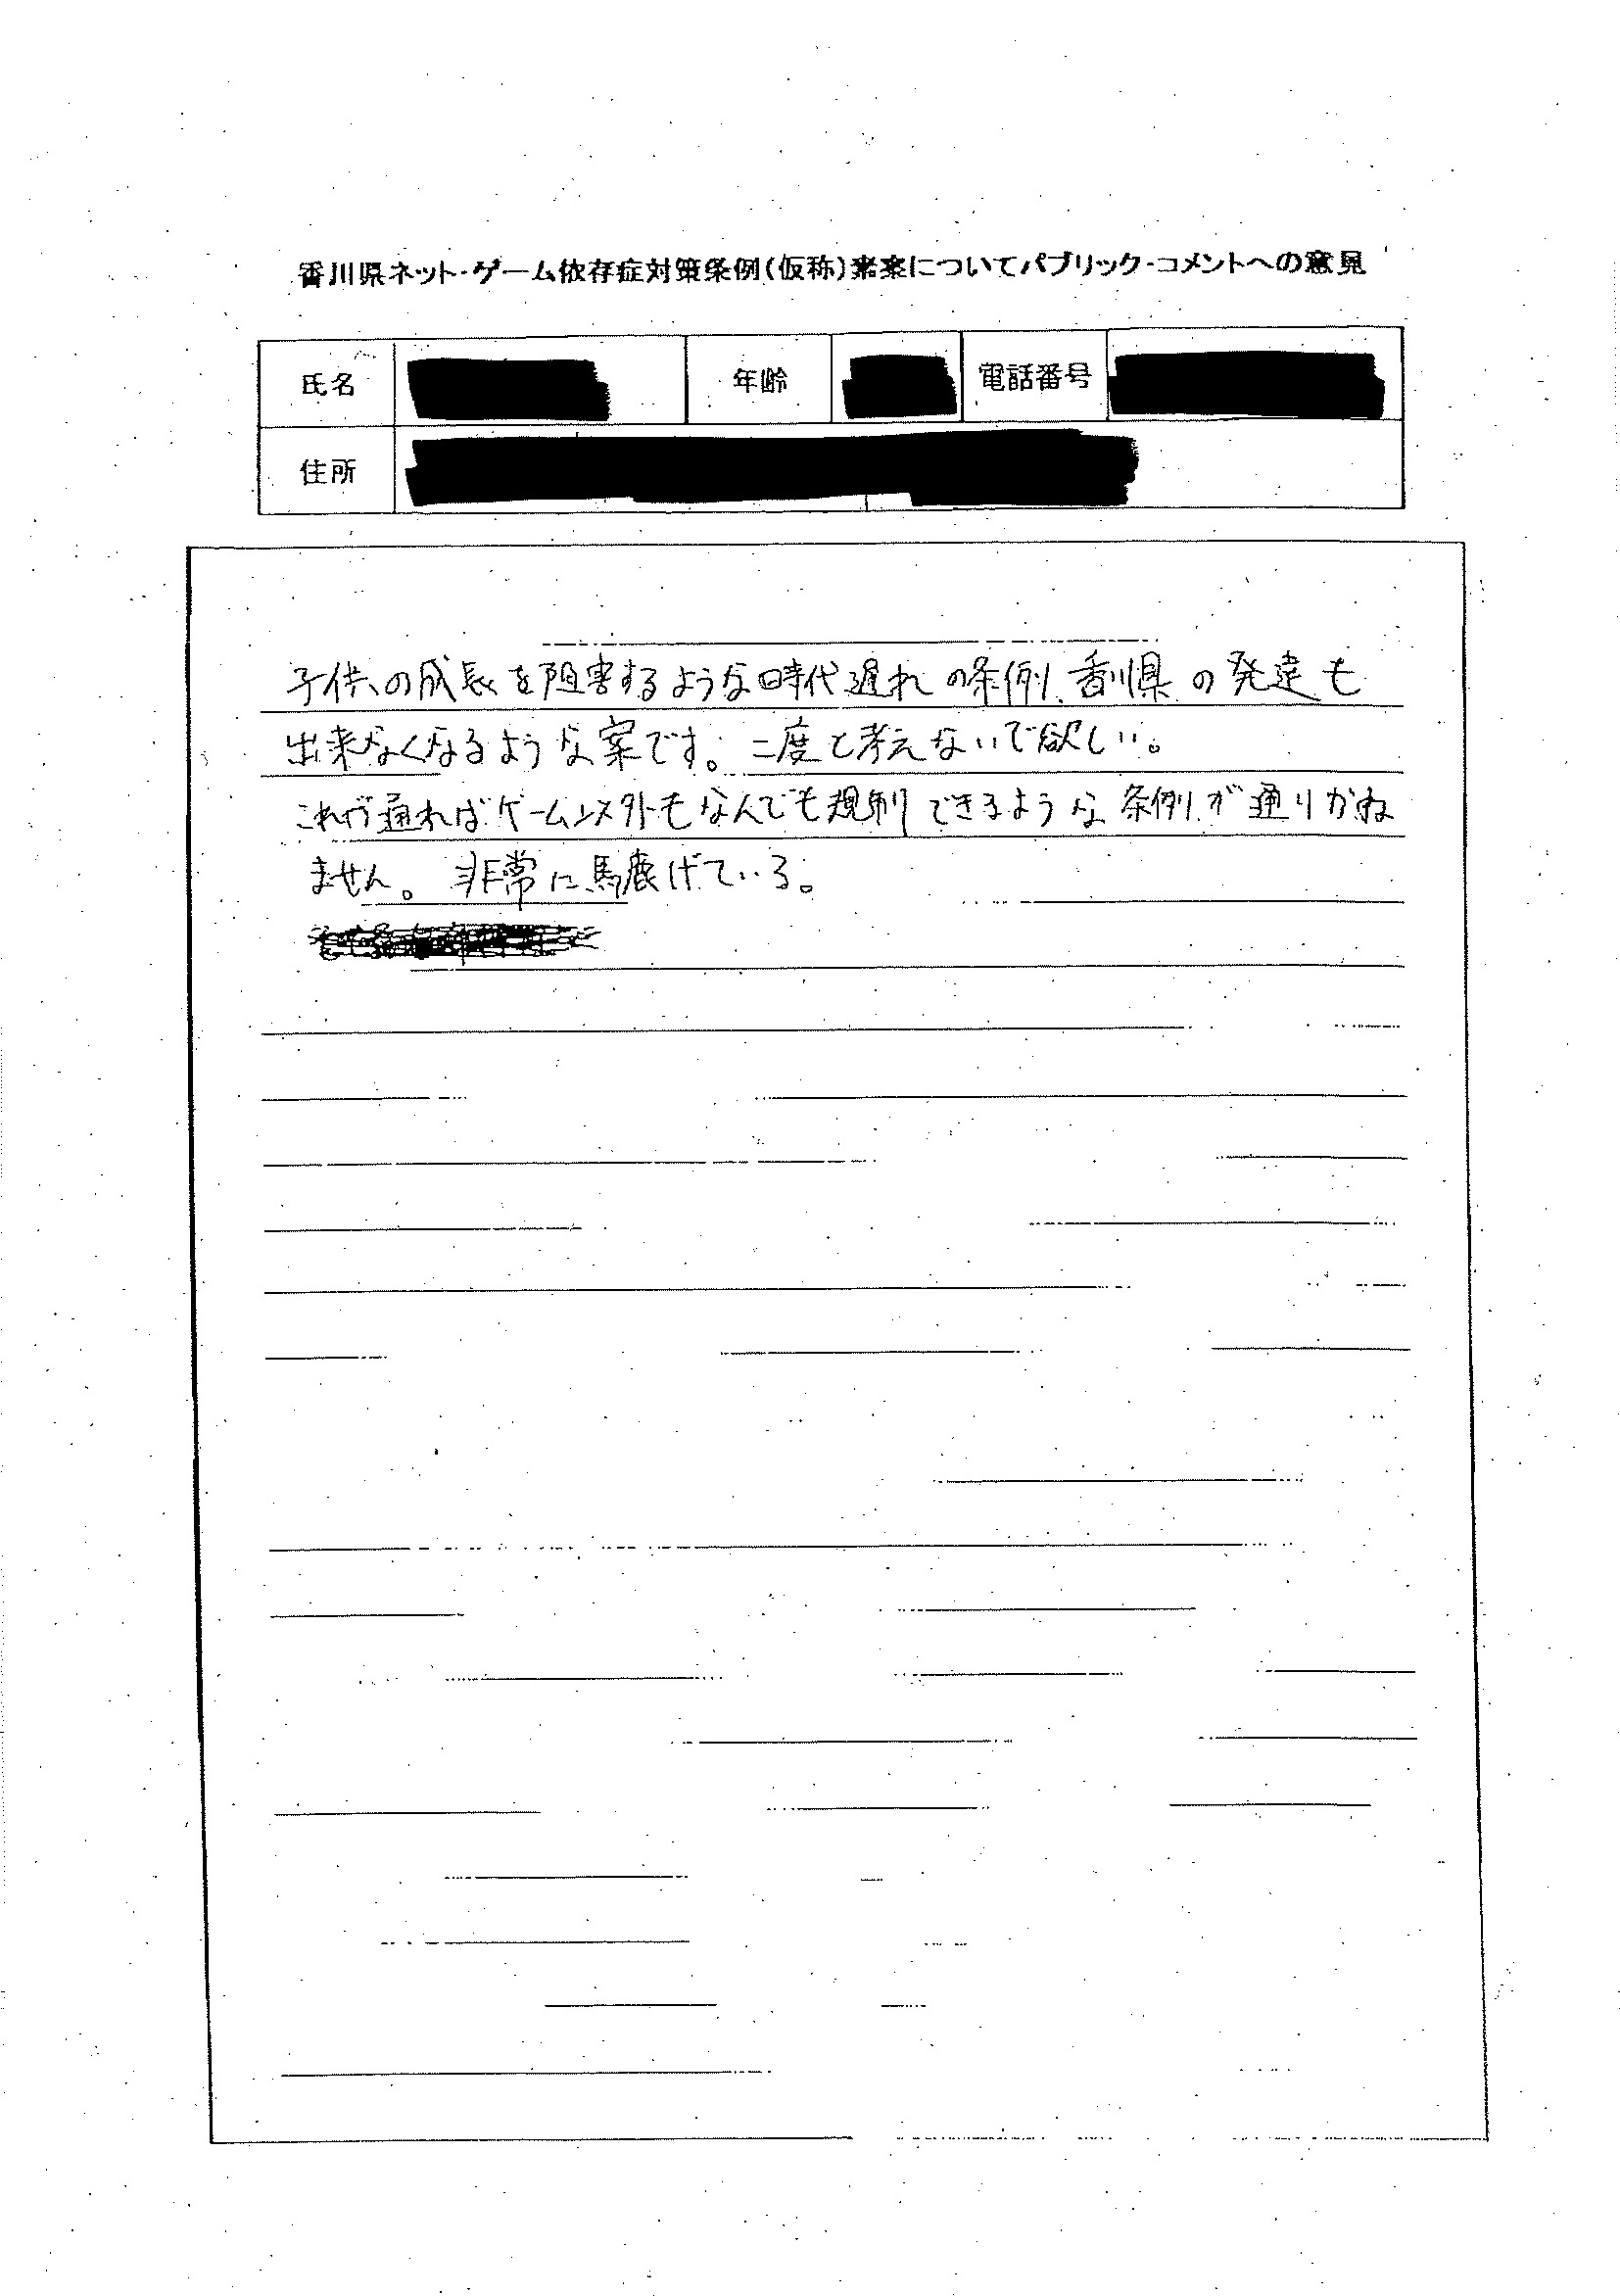 香川県ネット・ゲーム依存症対策条例(仮称)素案についてパブリック・コメントへの意見
氏名 年齢 電話番号
住所
子供の成長を阻害するような時代遅れの条例、香川県の発達も
出来なくなるような案です。二度と考えないで欲しい。
これが通ればゲーム以外もなんでも規制できるような条例が通りかね
ません。非常に馬鹿げている。